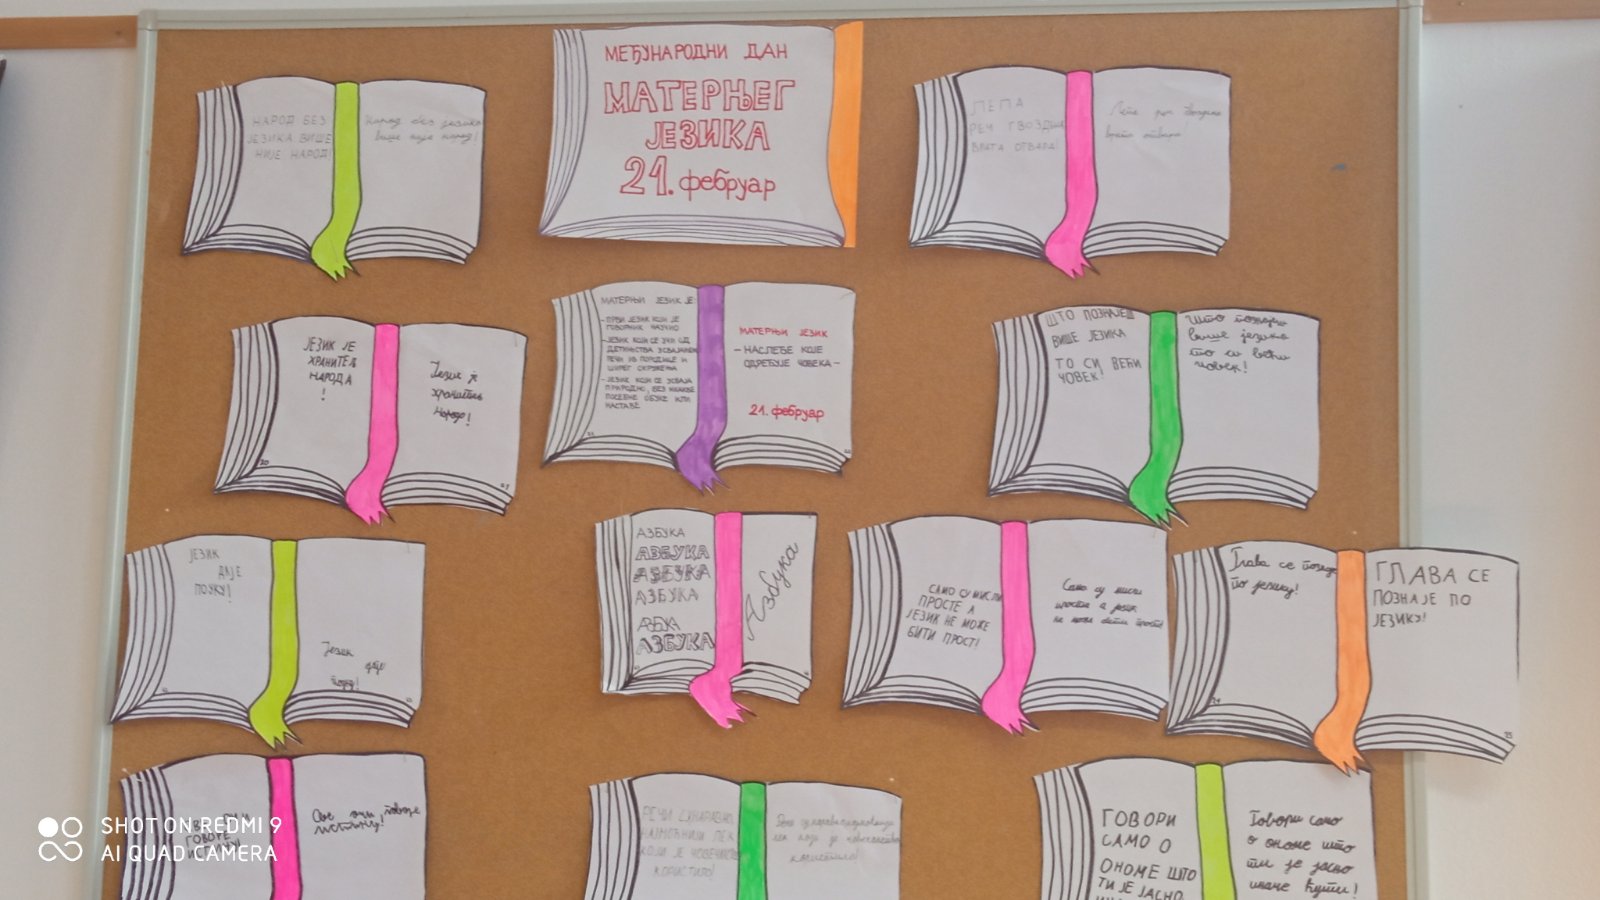 НАРОД БЕЗ
ЈЕЗИКА ВИШЕ
НИЈЕ НАРОД!
Народ без језика
више није народ!
МЕЂУНАРОДНИ ДАН
МАТЕРЊЕГ
ЈЕЗИКА
21. фебруар
ЛЕПА
РЕЧ ГВОЗДЕНА
ВРАТА ОТВАРА!
Лепа реч гвоздена
врата отвара!
ЈЕЗИК ЈЕ
ХРАНИТЕЉ
НАРОДА
!
Језик је
хранитељ
народа!
20
21
МАТЕРЊИ ЈЕЗИК ЈЕ:
- ПРВИ ЈЕЗИК КОЈИ ЈЕ
ГОВОРНИК НАУЧИО
- ЈЕЗИК КОЈИ СЕ УЧИ ОД
ДЕТИЊСТВА УСВАЈАЊЕМ
РЕЧИ ИЗ ПОРОДИЦЕ И
ШИРЕГ ОКРУЖЕЊА
- ЈЕЗИК КОЈИ СЕ УСВАЈА
ПРИРОДНО, БЕЗ ИКАКВЕ
ПОСЕБНЕ ОБУКЕ ИЛИ
НАСТАВЕ
МАТЕРЊИ ЈЕЗИК
- НАСЛЕЂЕ КОЈЕ
ОДРЕЂУЈЕ ЧОВЕКА -
21. фебруар
ШТО ПОЗНАЈЕШ
ВИШЕ ЈЕЗИКА
ТО СИ ВЕЋИ
ЧОВЕК!
Што познајеш
више језика
то си већи
човек!
ЈЕЗИК
ДАЈЕ
ПОУКУ!
Језик
даје
поуку!
АЗБУКА
АЗБУКА
АЗБУКА
АЗБУКА
АЗБУКА
Азбука
САМО СУ МИСЛИ
ПРОСТЕ А
ЈЕЗИК НЕ МОЖЕ
БИТИ ПРОСТ!
Само су мисли
просте а језик
не може бити прост!
Глава се познаје
по језику!
24
ГЛАВА СЕ
ПОЗНАЈЕ ПО
ЈЕЗИКУ!
25
ГОВОРЕ
Све очи говоре
истину!
РЕЧИ СУ НАРАВНО,
НАЈМОЋНИЈИ ЛЕК
КОЈИ ЈЕ ЧОВЕЧАНСТВО
КОРИСТИЛО!
лек који је човечанство
користило!
ГОВОРИ
САМО О
ОНОМЕ ШТО
ТИ ЈЕ ЈАСНО
Говори само
о ономе што
ти је јасно
иначе ћути!
SHOT ON REDMI 9
AI QUAD CAMERA